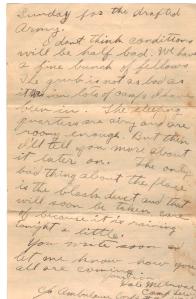 Sunday for the drafted
Army.
I don't think conditions
will be half bad. We have
a fine bunch of fellows.
The grub is not as bad as
it is in lots of camps I have
been in. The sleeping
quarters are dry and are
roomy enough. But then
I'll tell you more about
it later on. The only
bad thing about the place
is the black dust and that
will soon be taken care
of because it is raining
tonight a little.
You write soon &
let me know how you
all are coming.
Co Ambulance